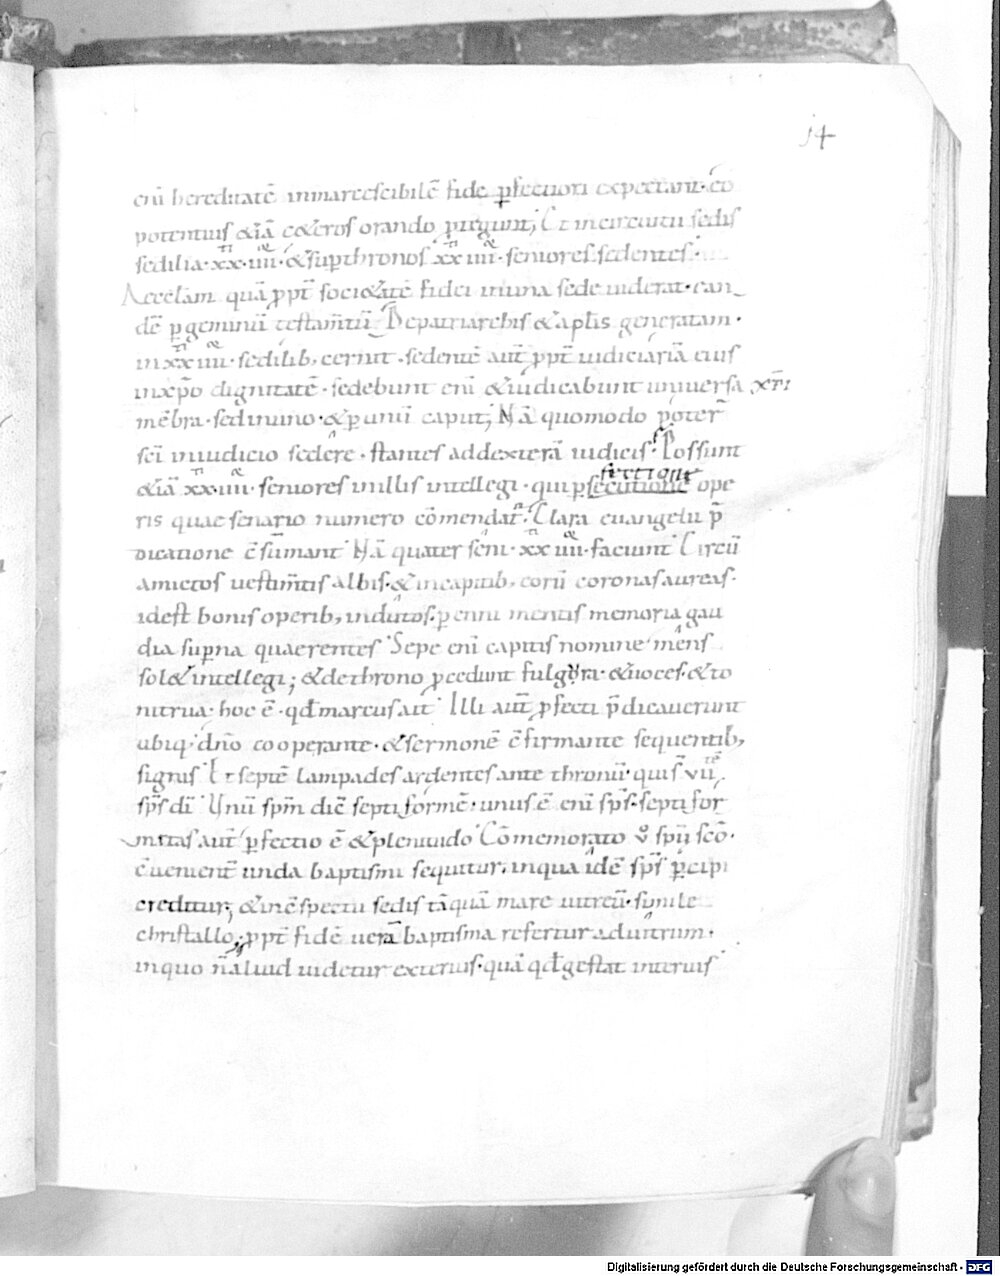 14
eni hereditatē inmarcescibilē fide ꝑfectiori expectant· eo
potentius &iā cęteros orando ꝓtegunt; Et incircuitu sedis
sedilia· xx· iiii· & sup̄ thronos xx iiii· seniores sedentes·
Aecclām quā ꝓpt̄ soci&atē fidei inuna sede uiderat· ean_
dē ꝑ geminū testam̄tū Depatriarchis & apl̄is generatam·
in xx iiii· sedilib; cernit· sedentē aut̄ ꝓpt̄ iudiciariā eius
inxp̄o dignitatē· sedebunt eni & iudicabunt uniuersa xp̄i
mēbra· sedinuno· & ꝑ unū caput; Nā quomodo poter̄
sc̄i iniudicio sedere· stantes addexterā iudicis· Possunt
&iā xx· iiii· seniores inillis intellegi· qui ꝑsecutione ope
fectione
ris quae senario numero cōmendat̄· Clara euangelii p̄
dicatione c̄sūmant Nā quater seni· xx iiii· faciunt Circū
amictos uestim̄tis albis· & incapitib; eorū coronas aureas·
idest bonis operib; indutos· ꝑenni mentis memoria gau
dia sup̄na quaerentes Sepe eni capitis nomine mens
sol& intellegi; & dethrono ꝓcedunt fulgura· & uoces· & to
nitrua· hoc ē· qd̄ marcus ait Illi aut̄ ꝓfecti p̄dicauerunt
ubiq; dn̄o cooperante· & sermonē c̄firmante sequentib;
signis Et septē lampades ardentes ante thronū· qui s̄ vii
sp̄s di Unū sp̄m dic̄ septiformē· unus ē eni sp̄s· septifor
mitas aut̄ ꝑfectio ē & plenitudo Cōmemorato u sp̄u sc̄o·
c̄uenient̄ unda baptismi sequitur· inqua idē sp̄s p̄cipi
creditur; & inc̄spectu sedis tāquā mare uitreū· simile
christallo; ꝓpt̄ fidē uerā baptisma refertur aduitrum·
inquo n̄ aliud uidetur exterius· quā qd̄ gestat interius
Digitalisierung gefördert durch die Deutsche Forschungsgemeinschaft - DFG